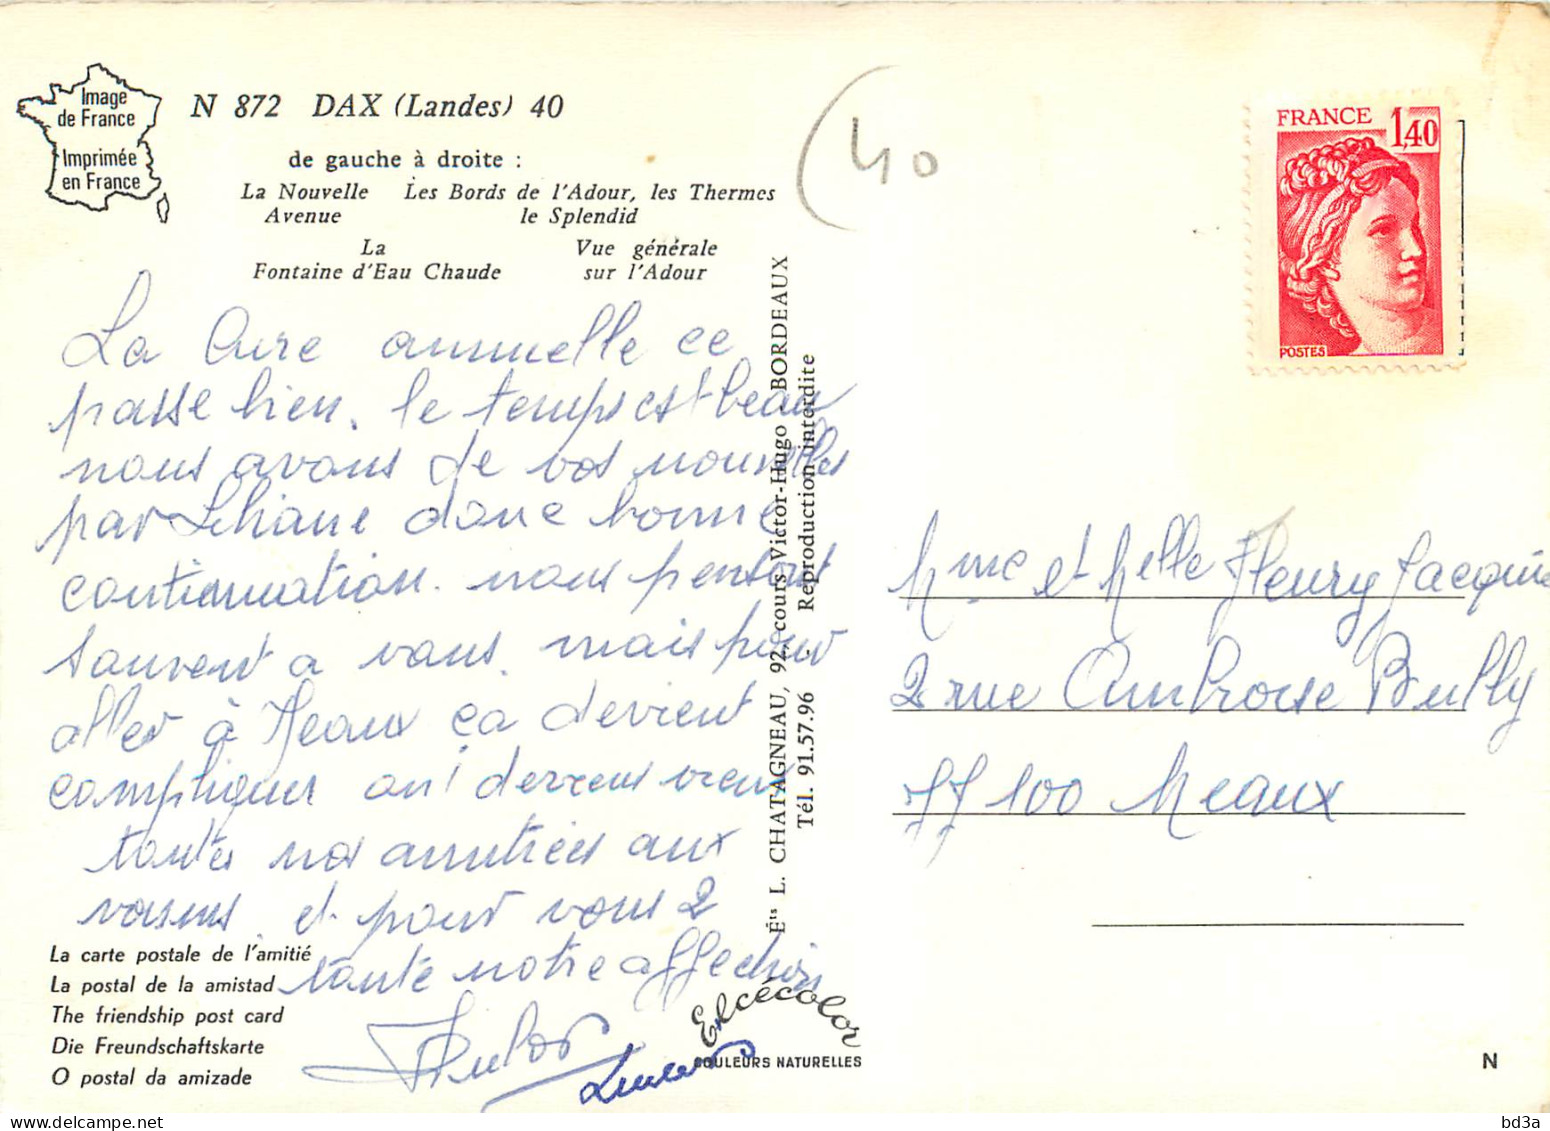 Image
de France
Imprimée
en France
N 872 DAX (Landes) 40
de gauche à droite :
La Nouvelle Les Bords de l'Adour, les Thermes
Avenue le Splendid
La Vue générale
Fontaine d'Eau Chaude sur l'Adour
40
FRANCE 1,40
POSTES
La Cure annuelle ce
passe bien. le temps est beau
nous avons de vos nouvelles
par Liliane donc bonne
continuation. nous pensont
souvent a vous. mais pour
aller à Meaux ça devient
compliquer on i devrens vieux
toutes nos amitiées aux
voisins. et pour vous 2
toute notre affection
Éts L. CHATAGNEAU, 92, cours Victor-Hugo - BORDEAUX
Tél. 91.57.96 - Reproduction interdite
Mme et Melle Fleury Jacquine
2 rue Ambroise Bully
77100 Meaux
La carte postale de l'amitié
La postal de la amistad
The friendship post card
Die Freundschaftskarte
O postal da amizade
Elcécolor
COULEURS NATURELLES
N
bd3a